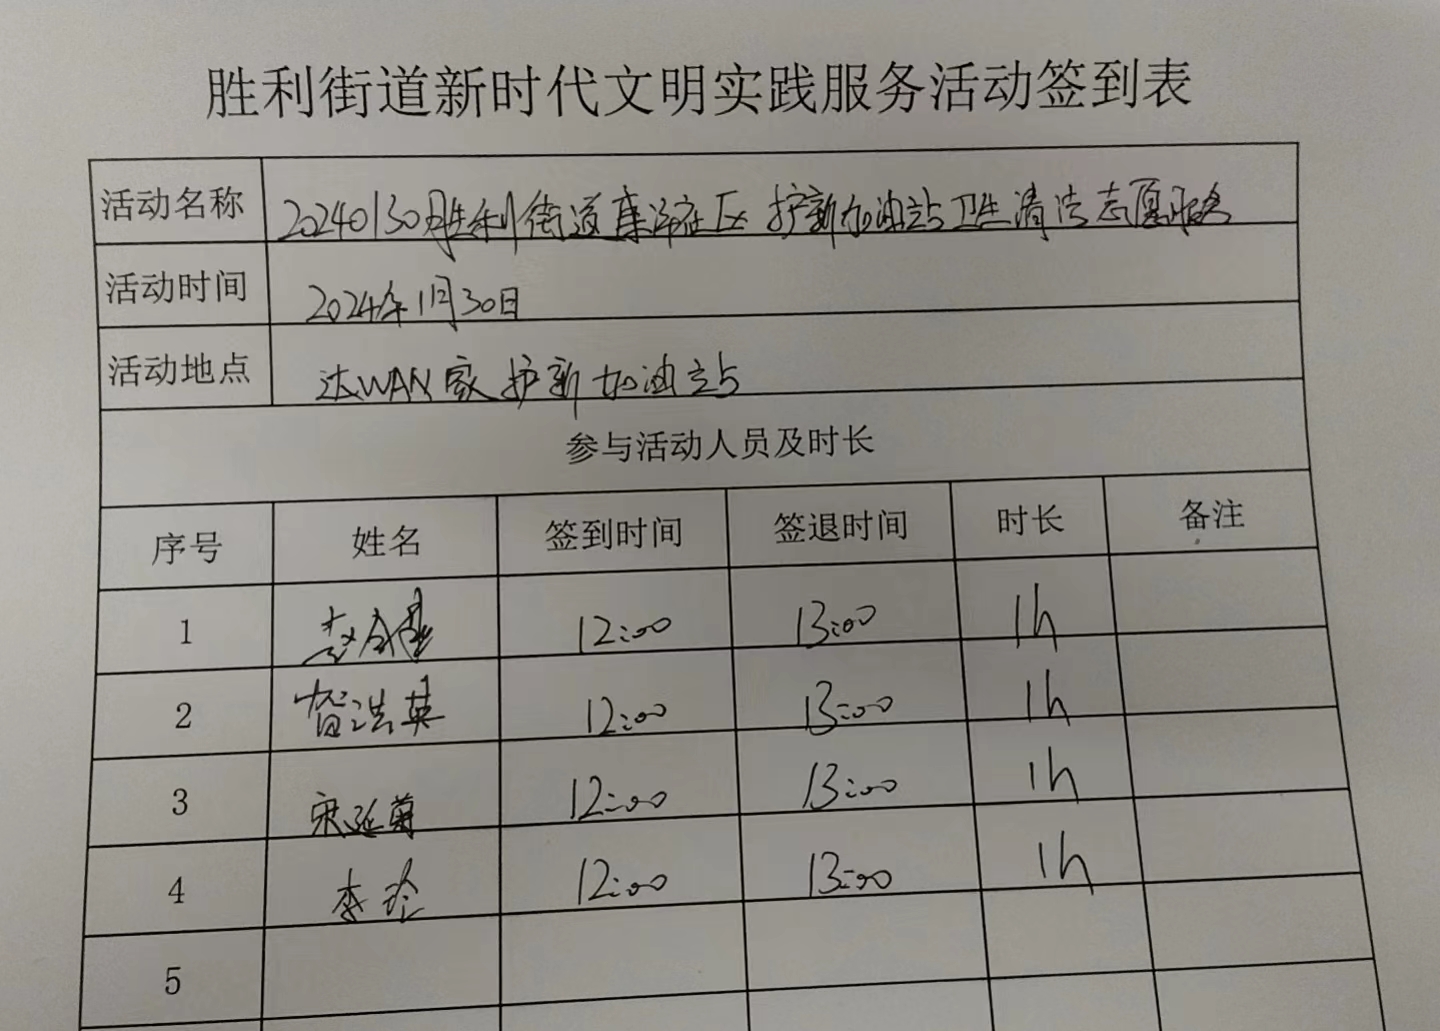 胜利街道新时代文明实践服务活动签到表
活动名称 20240130胜利街道康泽社区护新加油站卫生清洁志愿服务
活动时间 2024年1月30日
活动地点 达WAN家护新加油站
参与活动人员及时长
序号 姓名 签到时间 签退时间 时长 备注
1 12:00 13:00 1h
2 贺浩英 12:00 13:00 1h
3 宋延菊 12:00 13:00 1h
4 李玲 12:00 13:00 1h
5